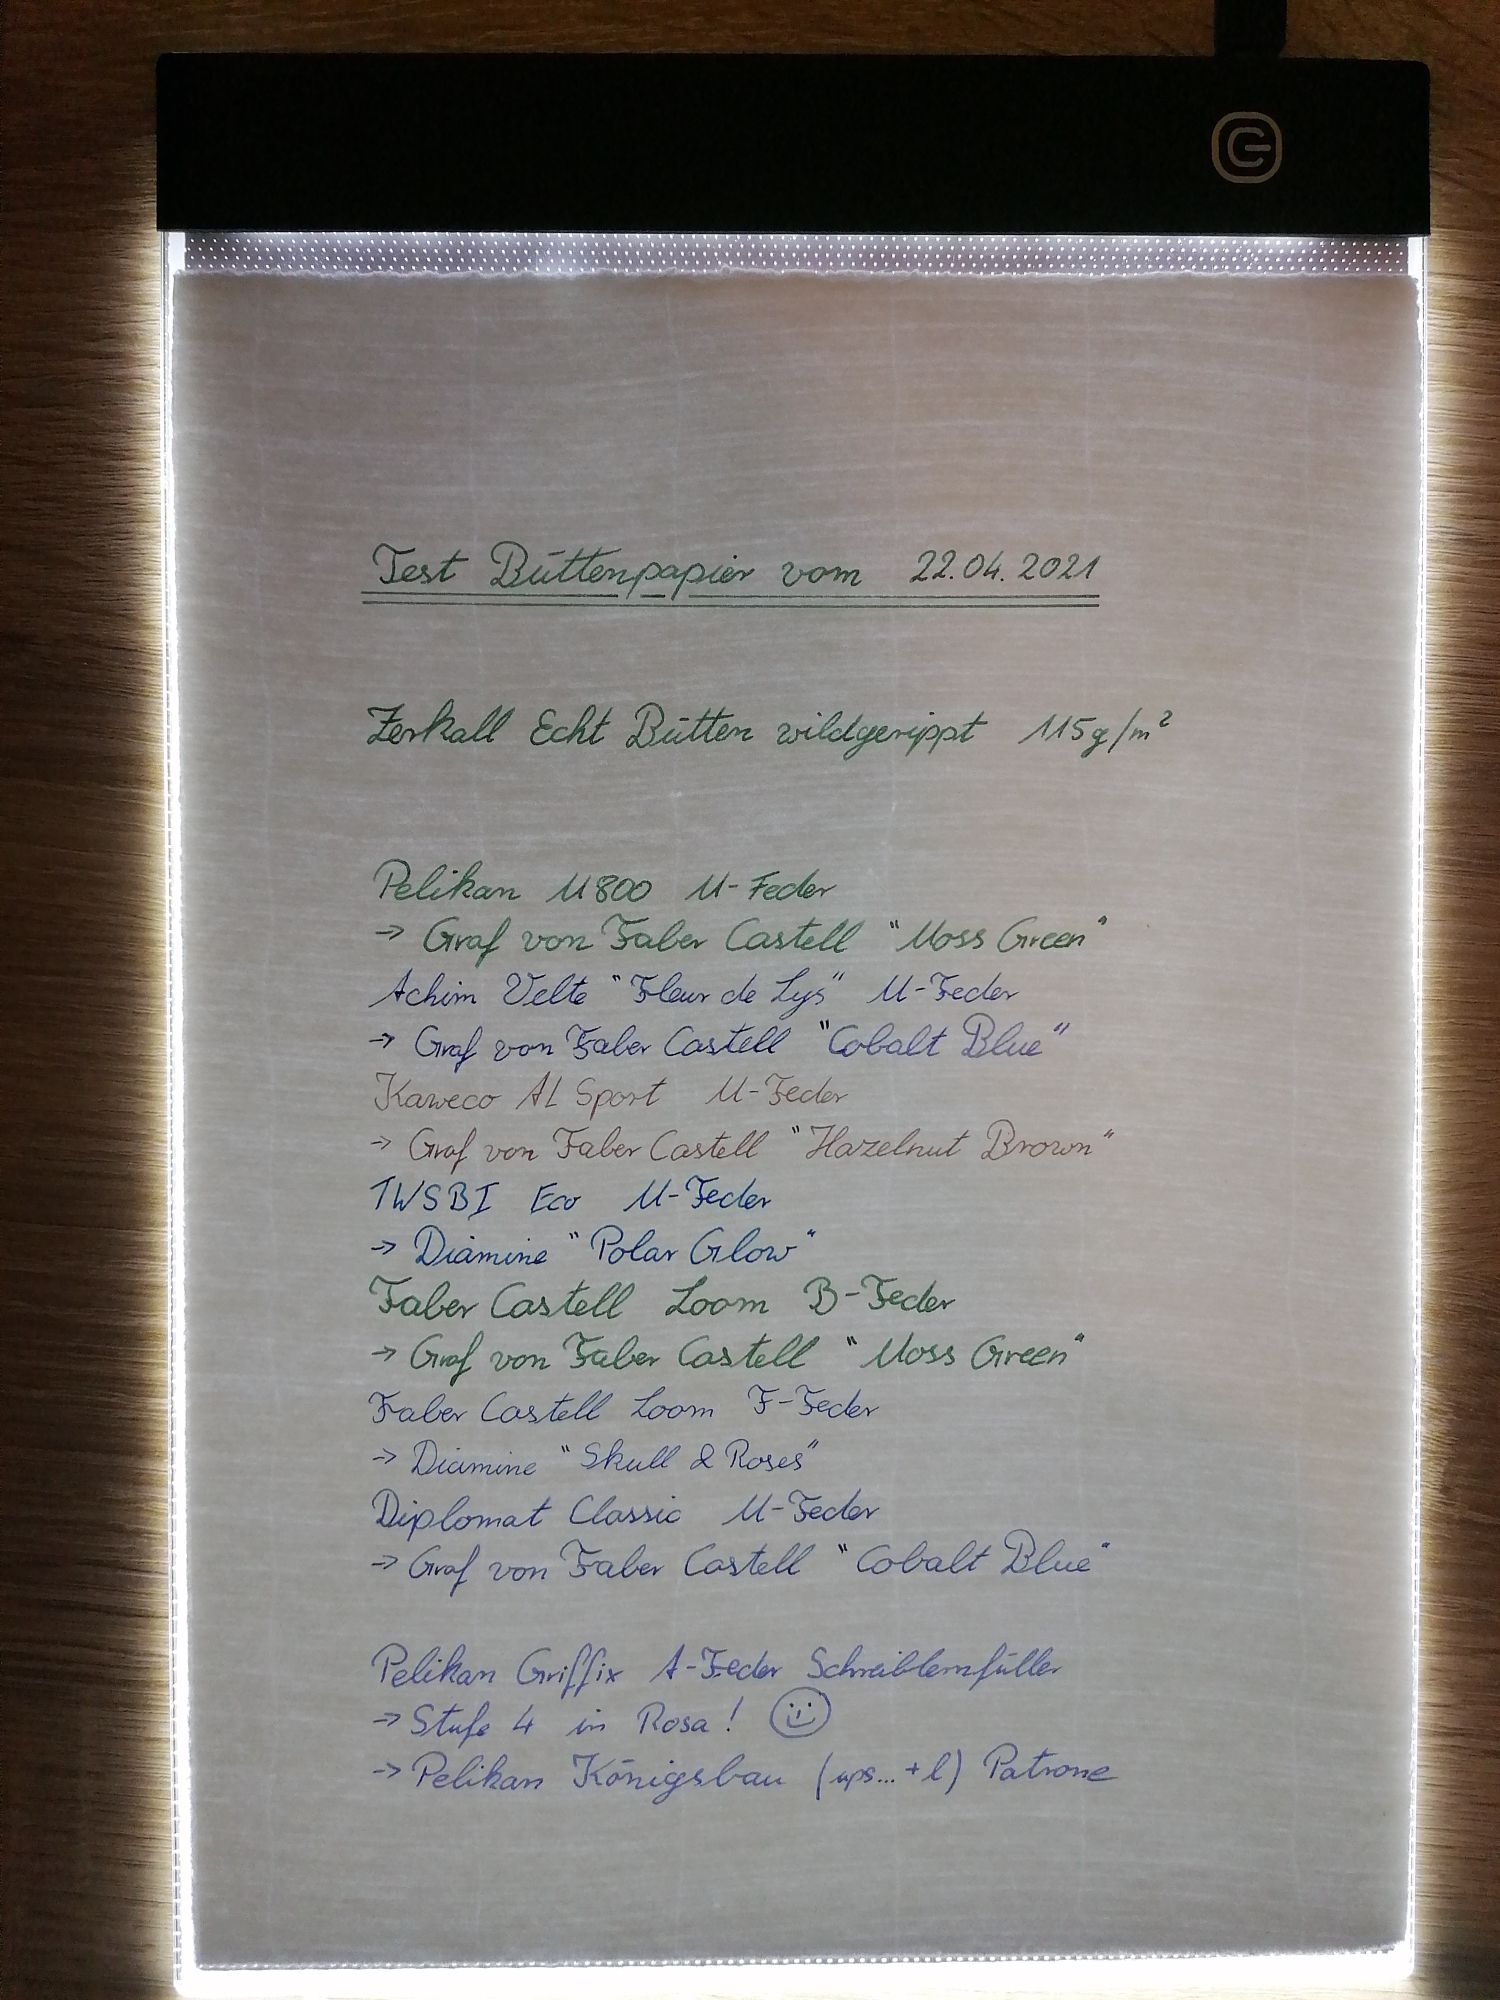 Test Büttenpapier vom 22.04.2021
Zerkall Echt Bütten wildgerippt 115g/m²
Pelikan M800 M-Feder
→ Graf von Faber Castell "Moss Green"
Achim Velte "Fleur de Lys" M-Feder
→ Graf von Faber Castell "Cobalt Blue"
Kaweco AL Sport M-Feder
→ Graf von Faber Castell "Hazelnut Brown"
TWSBI Eco M-Feder
→ Diamine "Polar Glow"
Faber Castell Loom B-Feder
→ Graf von Faber Castell "Moss Green"
Faber Castell Loom F-Feder
→ Diamine "Skull & Roses"
Diplomat Classic M-Feder
→ Graf von Faber Castell "Cobalt Blue"
Pelikan Griffix A-Feder Schreiblernfüller
→ Stufe 4 in Rosa! ☺
→ Pelikan Königsbau (ups... + l) Patrone